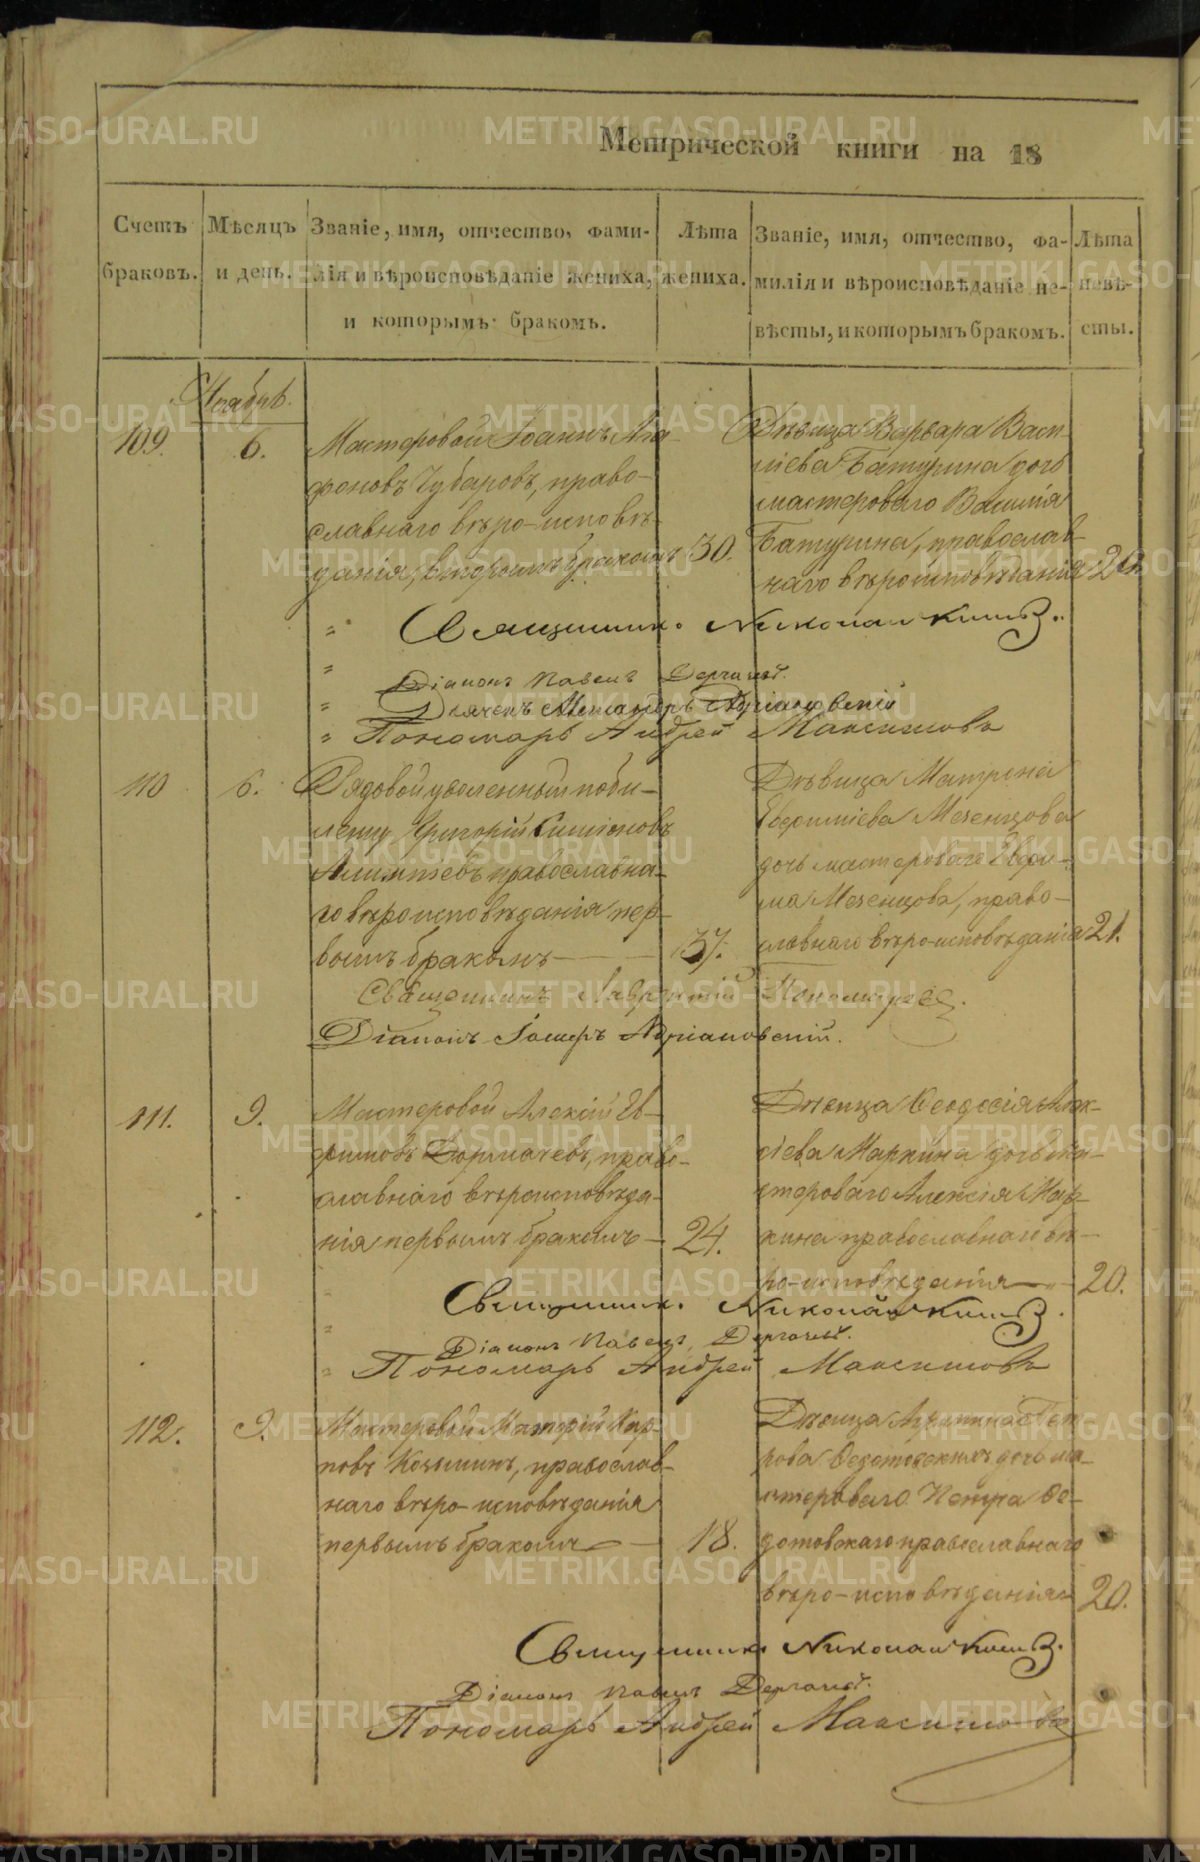 Метрической книги на 18
Счетъ браковъ.
Мѣсяцъ и день.
Званіе, имя, отчество, фами-
лія и вѣроисповѣданіе жениха,
и которымъ бракомъ.
Лѣта жениха.
Званіе, имя, отчество, фа-
милія и вѣроисповѣданіе не-
вѣсты, и которымъ бракомъ.
Лѣта невѣ-
сты.
Ноябрь.
109. 6.
Мастеровой Іоаннъ Ага-
фоновъ Чубаровъ, право-
славнаго вѣро-исповѣ-
данія, вторымъ бракомъ 30.
Дѣвица Варвара Васи-
ліева Батурина дочь
мастероваго Василія
Батурина, православ-
наго вѣроисповѣданія 20.
" Священникъ Николай
" Діаконъ Павелъ Дергачевъ.
" Дьячекъ Александръ Адріановскій
" Пономарь Андрей Максимовъ
110 6.
Рядовой уволенный по би-
лету Григорій Симіоновъ
православна-
го вѣроисповѣданія пер-
вымъ бракомъ 37.
Дѣвица Матрона
Евфиміева Мезенцова
дочь мастероваго Евфи-
ма Мезенцова, право-
славнаго вѣро-исповѣданія 21.
Священникъ Лаврентій
Діаконъ Іосифъ Адріановскій.
111. 9.
Мастеровой Алексій Ев-
фимовъ Дормачевъ, право-
славнаго вѣроисповѣда-
нія первымъ бракомъ 24.
Дѣвица Ѳеодосія Алек-
сіева Маркина дочь ма-
стероваго Алексія Мар-
кина православнаго вѣ-
ро-исповѣданія 20.
Священникъ Николай
" Діаконъ Павелъ Дергачевъ.
" Пономарь Андрей Максимовъ
112. 9.
Мастеровой Матфій Кар-
повъ православ-
наго вѣро-исповѣданія
первымъ бракомъ 18.
Дѣвица Агрипина Пет-
рова Ѳедотовскихъ дочь ма-
стероваго Петра Ѳе-
дотовскаго православнаго
вѣро-исповѣданія 20.
Священникъ Николай
Діаконъ Павелъ Дергачевъ.
Пономарь Андрей Максимовъ
METRIKI.GASO-URAL.RU